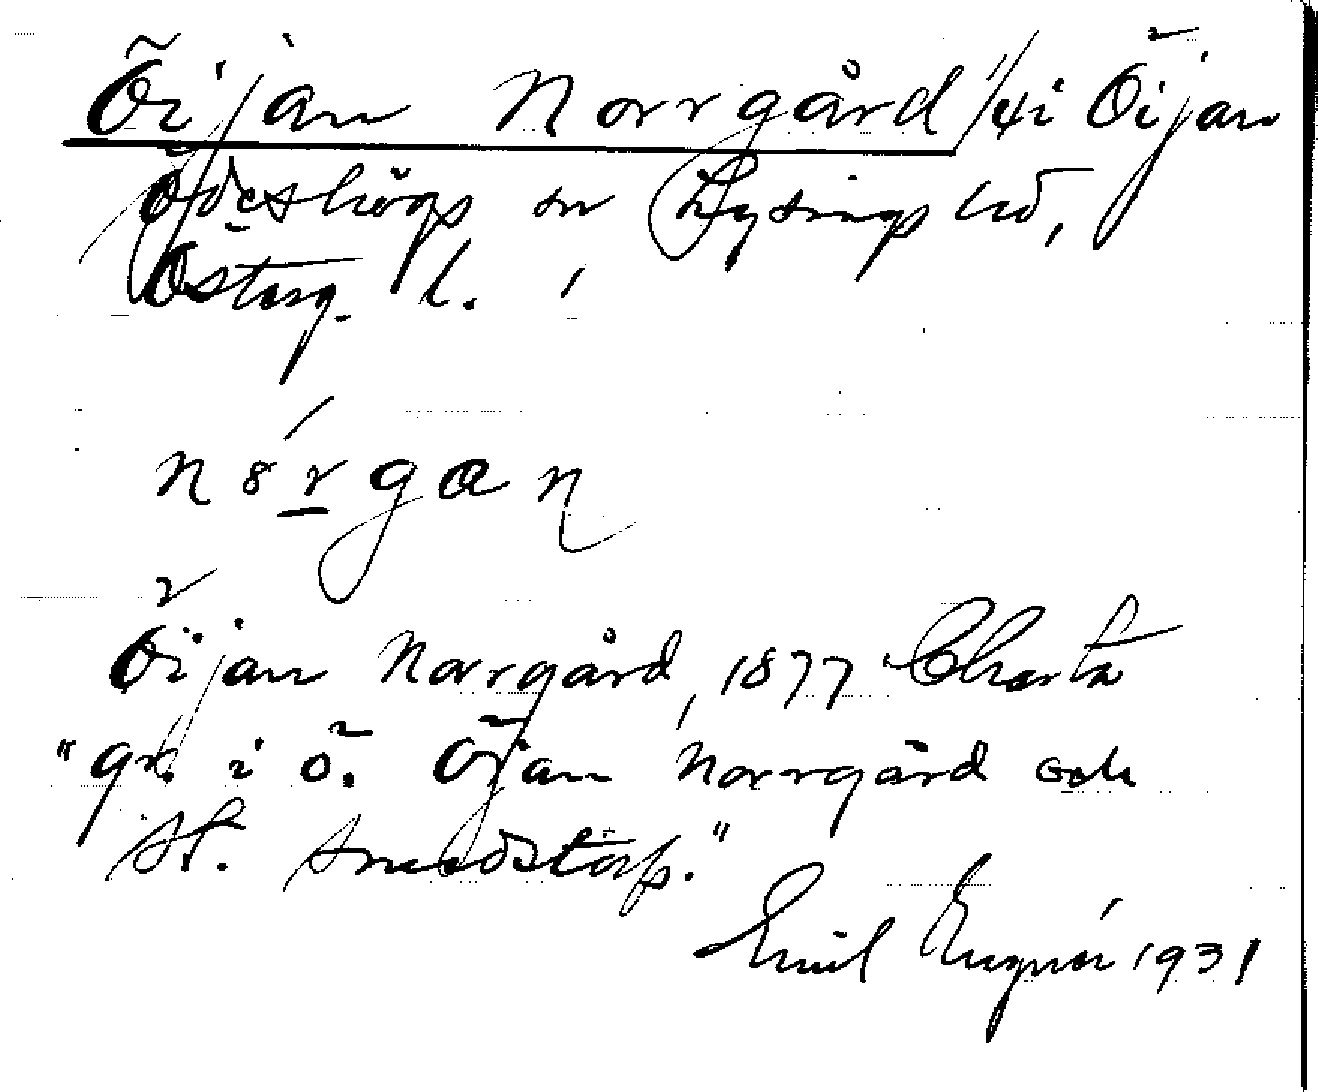 Öijan Norrgård 1/4 i Öijan
Ödeshögs sn Lysings hd,
Österg. l.
nórgan
Öijan Norrgård, 1877 Charta
"gr. i ö. Öjan Norrgård och
St. Smedstorp."
Emil 1931